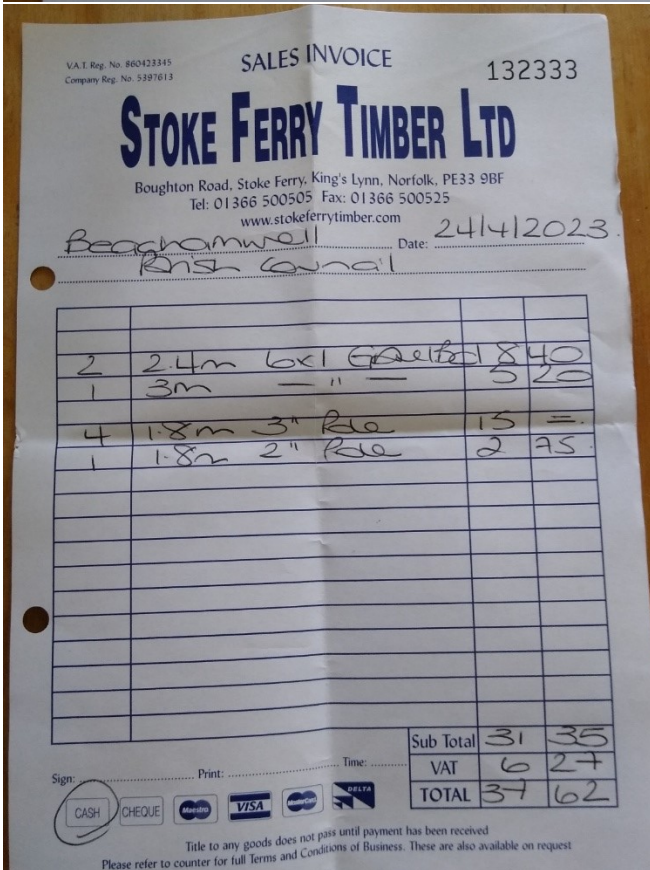 V.A.T. Reg. No. 860423345
Company Reg. No. 5397613
SALES INVOICE
132333
STOKE FERRY TIMBER LTD
Boughton Road, Stoke Ferry, King's Lynn, Norfolk, PE33 9BF
Tel: 01366 500505 Fax: 01366 500525
www.stokeferrytimber.com
Beachamwell Date: 24/4/2023.
Parish Council
2 2.4m 6x1 8 40
1 3m — " — 5 20
4 1.8m 3" Pole 15 =
1 1.8m 2" Pole 2 75.
Sub Total 31 35
VAT 6 27
TOTAL 37 62
Sign: Print: Time:
CASH CHEQUE Maestro VISA MasterCard DELTA
Title to any goods does not pass until payment has been received
Please refer to counter for full Terms and Conditions of Business. These are also available on request